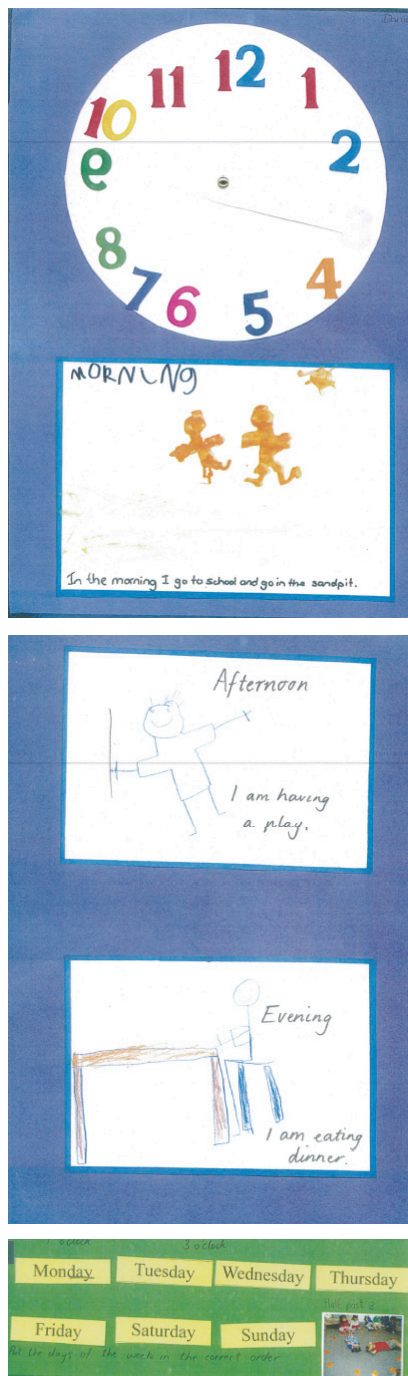 12
11 1
10 2
9 3
8 4
7 6 5
MORNING
In the morning I go to school and go in the sandpit.
Afternoon
I am having
a play.
Evening
I am eating
dinner.
o'clock 3 o'clock
Monday Tuesday Wednesday Thursday
Friday Saturday Sunday
Put the days of the week in the correct order